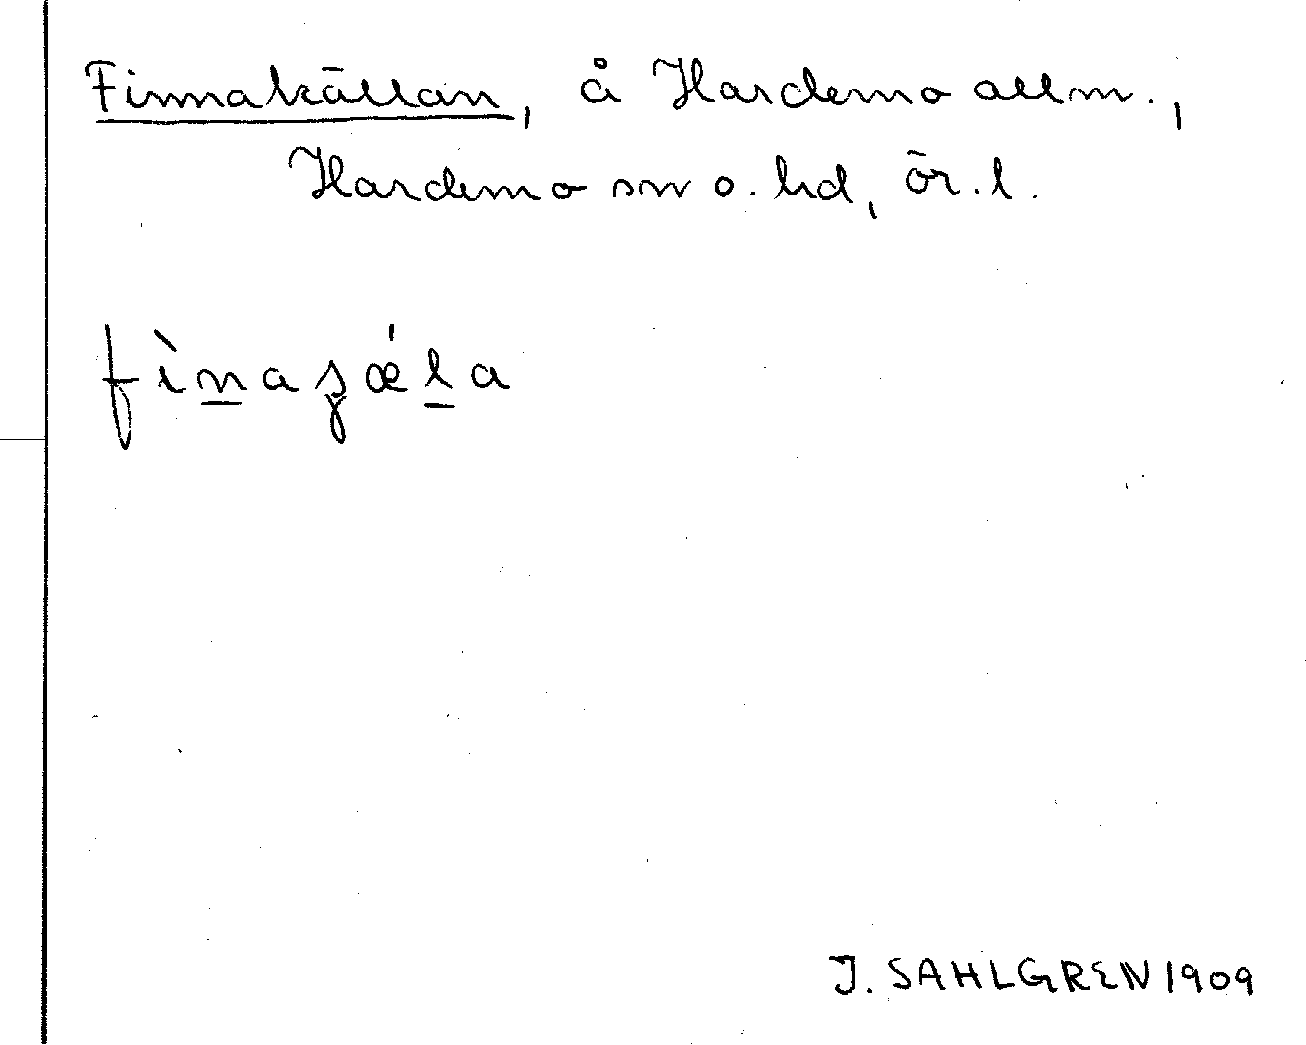 Finnakällan, å Hardemo allm.,
Hardemo sn o. hd, ör. l.
fìn̲aʂǽl̲a
J. SAHLGREN 1909